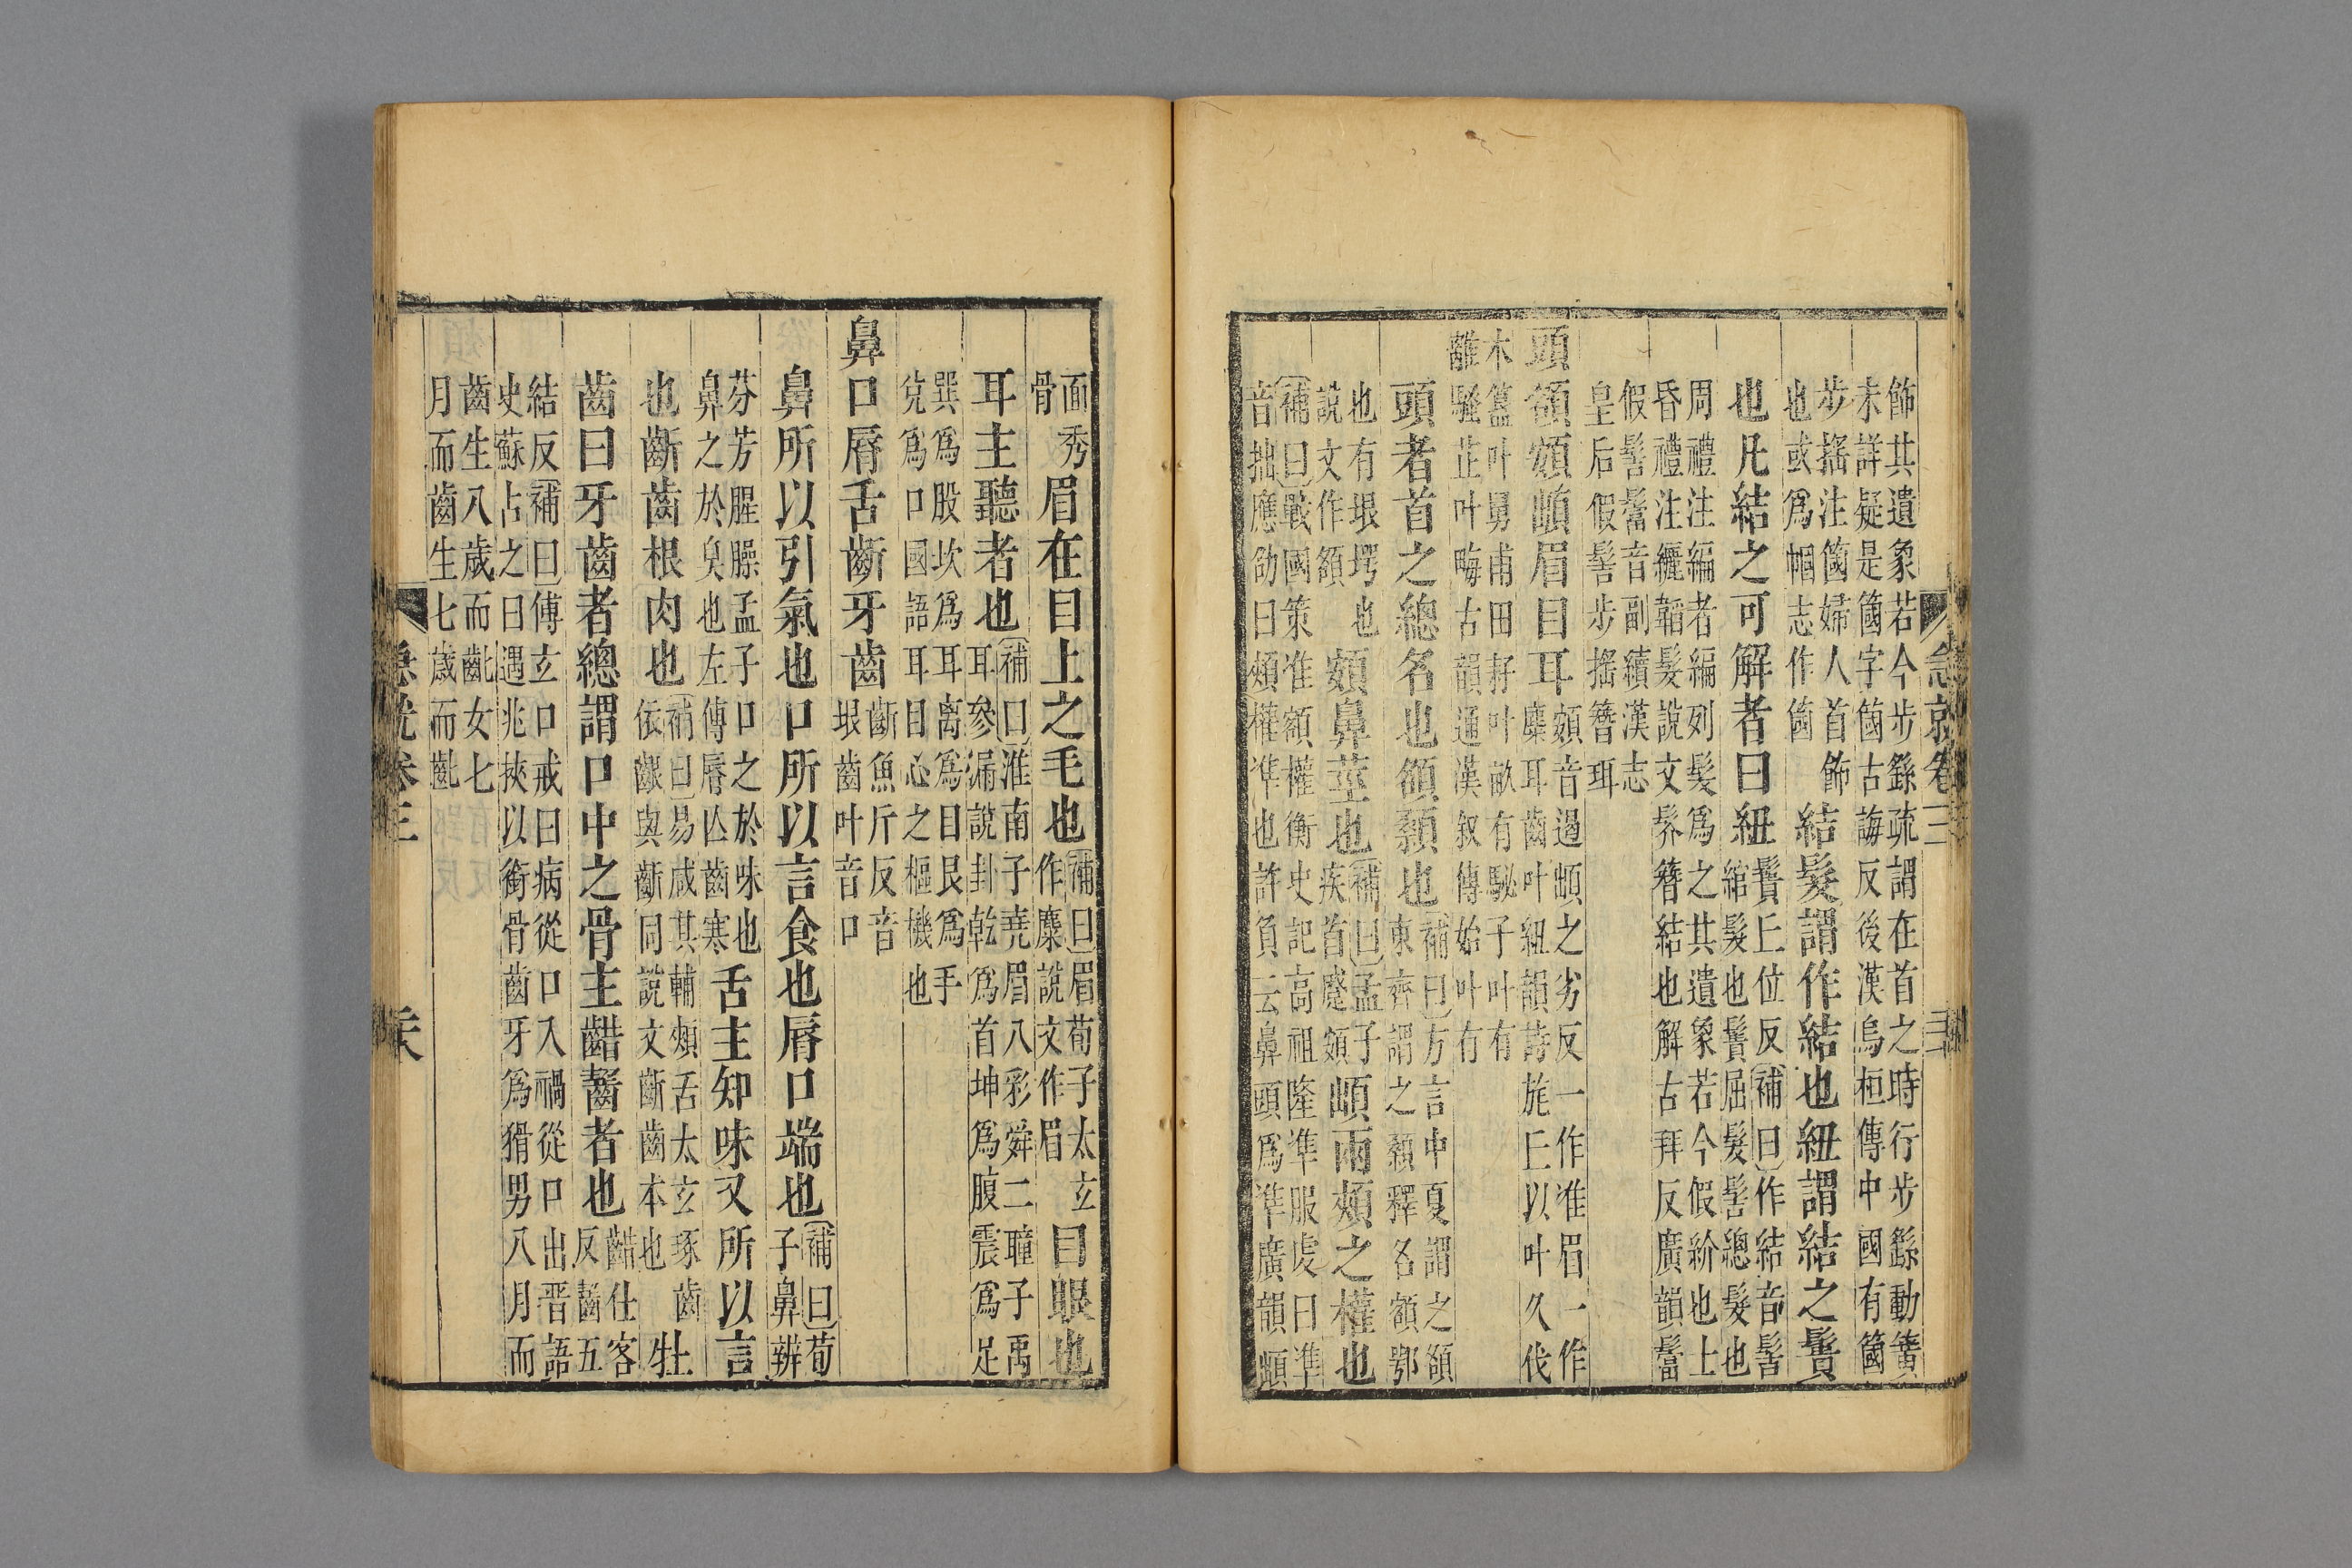 急就卷三
飾其遺象若今步繇疏謂在首之時行步繇動簧
未詳疑是箇字箇古誨反後漢烏桓傳中國有箇
步搖注箇婦人首飾
也或爲帼志作箇
結髮謂作結也紐謂結之鬒
也凡結之可解者曰紐
鬒丘位反補曰作結音髻
綰髮也鬒屈髮髻總髮也
周禮注編者編列髮爲之其遺象若今假紒也上
昏禮注纚韜髮說文髤簪結也解古拜反廣韻䯰
假髻䯰音副續漢志
皇后假髻步搖簪珥
頭頟頞䪼眉目耳
頞音遏䪼之劣反一作准眉一作
麋耳齒叶紐韻詩旄丘以叶久伐
木簋叶舅甫田耔叶畝有駜子叶有
離騷芷叶畮古韻通漢叙傳始叶有
頭者首之總名也頟顙也
補曰方言中夏謂之頟
東齊謂之顙釋名頟鄂
也有垠堮也
說文作頟
頞鼻莖也
補曰孟子
疾首蹙頞
䪼兩頰之權也
補曰戰國策准頟權衡史記高祖隆準服虔曰準
音拙應劭曰頰權準也許負云鼻頭爲準廣韻䪼
面秀
骨
眉在目上之毛也
補曰眉荀子太玄
作麋說文作眉
目眼也
耳主聽者也
補曰淮南子堯眉八彩舜二瞳子禹
耳參漏說卦乾爲首坤爲腹震爲足
巽爲股坎爲耳离爲目艮爲手
兌爲口國語耳目心之樞機也
鼻口脣舌齗牙齒
齗魚斤反音
垠齒叶音口
鼻所以引氣也口所以言食也脣口端也
補曰荀
子鼻辨
芬芳腥臊孟子口之於味也
鼻之於臭也左傳脣亾齒寒
舌主知味又所以言
也齗齒根肉也
補曰易咸其輔頰舌太玄琢齒
依齦與齗同說文齗齒本也
牡
齒曰牙齒者總謂口中之骨主齰齧者也
齰仕客
反齧五
結反補曰傅玄口戒曰病從口入禍從口出晉語
史蘇占之曰遇兆挾以銜骨齒牙爲猾男八月而
齒生八歲而齔女七
月而齒生七歲而齔
急就卷三